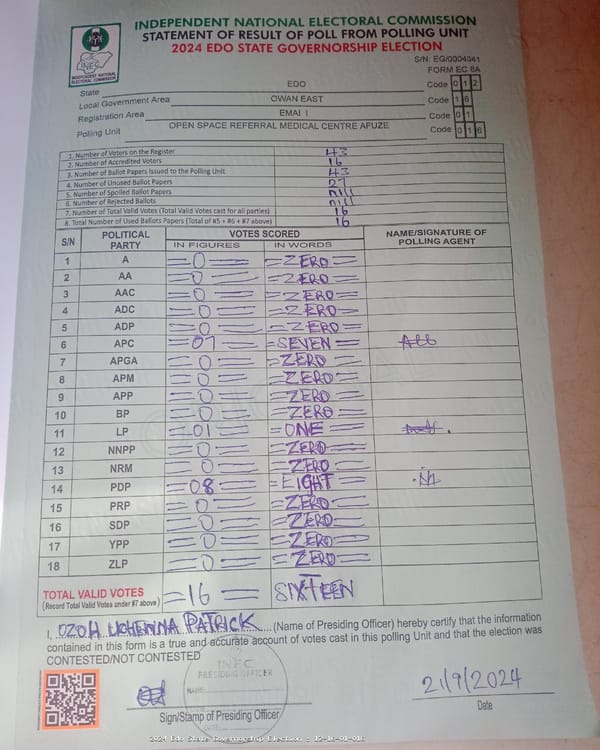 INDEPENDENT NATIONAL ELECTORAL COMMISSION
STATEMENT OF RESULT OF POLL FROM POLLING UNIT
2024 EDO STATE GOVERNORSHIP ELECTION
INEC
INDEPENDENT NATIONAL ELECTORAL COMMISSION
S/N: EG/0004041
FORM EC 8A
State EDO Code 0 1 2
Local Government Area OWAN EAST Code 1 6
Registration Area EMAI I Code 0 1
Polling Unit OPEN SPACE REFERRAL MEDICAL CENTRE AFUZE Code 0 1 6
1. Number of Voters on the Register 43
2. Number of Accredited Voters 16
3. Number of Ballot Papers Issued to the Polling Unit 43
4. Number of Unused Ballot Papers 27
5. Number of Spoiled Ballot Papers nill
6. Number of Rejected Ballots nill
7. Number of Total Valid Votes (Total Valid Votes cast for all parties) 16
8. Total Number of Used Ballots Papers (Total of #5 + #6 + #7 above) 16
S/N POLITICAL PARTY VOTES SCORED NAME/SIGNATURE OF POLLING AGENT
IN FIGURES IN WORDS
1 A =0= =ZERO=
2 AA =0= =ZERO=
3 AAC =0= =ZERO=
4 ADC =0= =ZERO=
5 ADP =0= =ZERO=
6 APC =07= =SEVEN=
7 APGA =0= =ZERO=
8 APM =0= =ZERO=
9 APP =0= =ZERO=
10 BP =0= =ZERO=
11 LP =01= =ONE=
12 NNPP =0= =ZERO=
13 NRM =0= =ZERO=
14 PDP =08= =EIGHT=
15 PRP =0= =ZERO=
16 SDP =0= =ZERO=
17 YPP =0= =ZERO=
18 ZLP =0= =ZERO=
TOTAL VALID VOTES =16= SIXTEEN
(Record Total Valid Votes under #7 above)
I, OZOH UCHENNA PATRICK (Name of Presiding Officer) hereby certify that the information
contained in this form is a true and accurate account of votes cast in this polling Unit and that the election was
CONTESTED/NOT CONTESTED
INEC
PRESIDING OFFICER
NAME:
DATE:
21/9/2024
Sign/Stamp of Presiding Officer
Date
2024 Edo State Governorship Election - 12-16-01-016